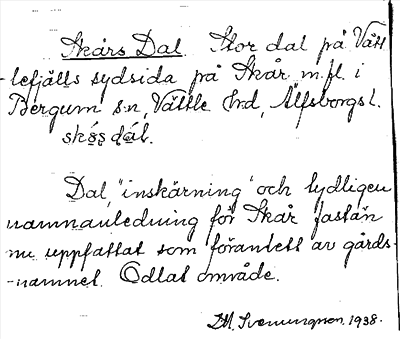 Skårs Dal. Stor dal på Vätt-
lefjälls sydsida på Skår m.fl. i
Bergum sn, Vättle hrd, Älfsborgs l.
Dal, "inskärning" och tydligen
namnanledning för Skår fastän
nu uppfattat som förantett av gårds-
-namnet. Odlat område.
1938.